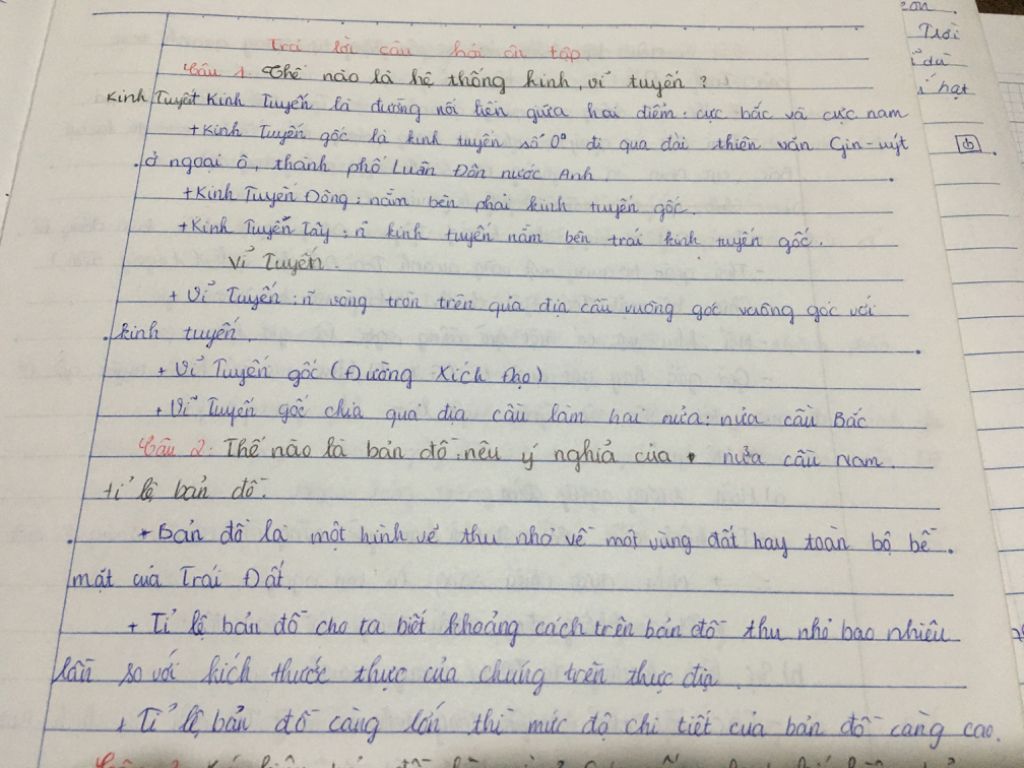 Trả lời câu hỏi ôn tập.
Câu 1. Thế nào là hệ thống kinh, vĩ tuyến ?
Kinh Tuyết Kinh Tuyến là đường nối liền giữa hai điểm: cực bắc và cực nam
+ Kinh Tuyến gốc là kinh tuyến số 0° đi qua đài thiên văn Gin-uýt
ở ngoại ô, thành phố Luân Đôn nước Anh.
+ Kinh Tuyến Đông: nằm bên phải kinh tuyến gốc.
+ Kinh Tuyến Tây: n~ kinh tuyến nằm bên trái kinh tuyến gốc.
Vĩ Tuyến.
+ Vĩ Tuyến: n~ vòng tròn trên quả địa cầu vuông góc vuông góc với
kinh tuyến.
+ Vĩ Tuyến gốc (Đường Xích Đạo)
+ Vĩ Tuyến gốc chia quả địa cầu làm hai nửa: nửa cầu Bắc
Câu 2: Thế nào là bản đồ. nêu ý nghĩa của nửa cầu Nam.
tỉ lệ bản đồ.
+ Bản đồ là một hình vẽ thu nhỏ về một vùng đất hay toàn bộ bề
mặt của Trái Đất.
+ Tỉ lệ bản đồ cho ta biết khoảng cách trên bản đồ thu nhỏ bao nhiêu
lần so với kích thước thực của chúng trên thực địa.
+ Tỉ lệ bản đồ càng lớn thì mức độ chi tiết của bản đồ càng cao.
Trời
hạt